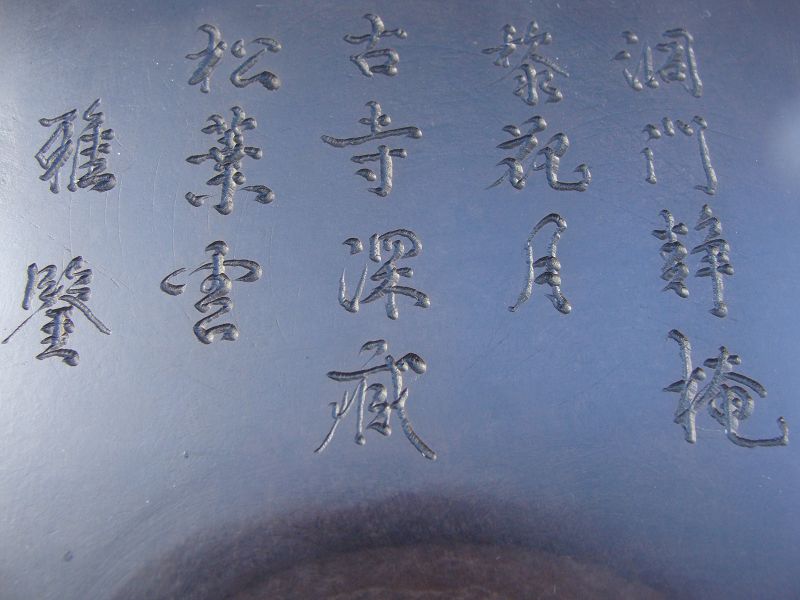 洞門靜掩
梨花月
古寺深藏
松葉雲
雅鑒